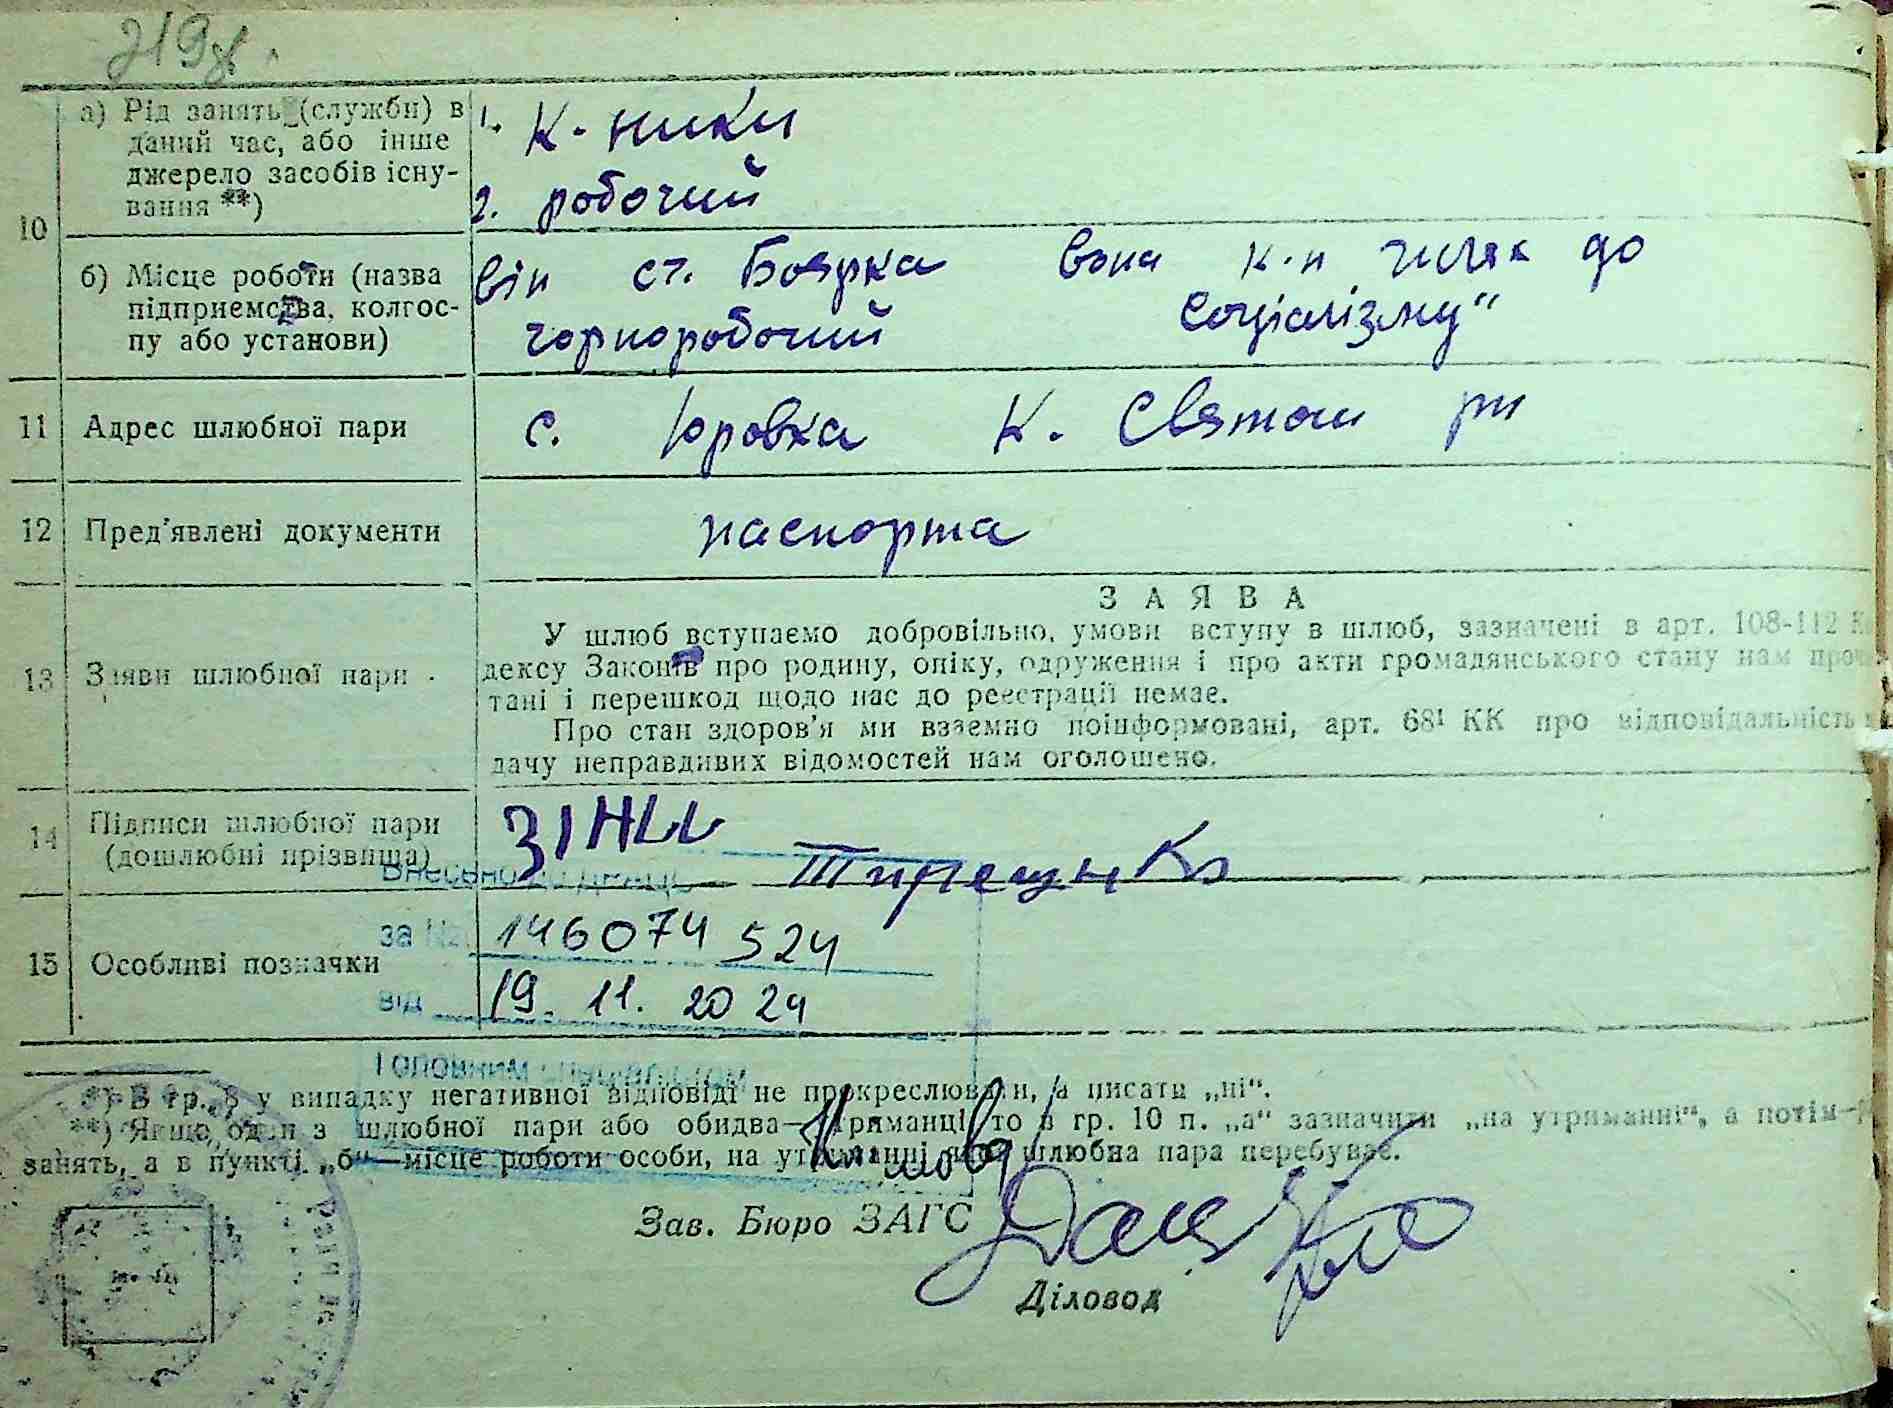 219зв.
10
а) Рід занять (служби) в даний час, або інше джерело засобів існування **)
1. К-ники
2. робочий
б) Місце роботи (назва підприємства, колгоспу або установи)
він ст. Боярка вона к-п шлях до
чорноробочий соціалізму"
11 Адрес шлюбної пари
с. Юровка К. Святош рн
12 Пред'явлені документи
паспорта
13 Заяви шлюбної пари
ЗАЯВА
У шлюб вступаємо добровільно, умови вступу в шлюб, зазначені в арт. 108-112 Ко
дексу Законів про родину, опіку, одруження і про акти громадянського стану нам прочи
тані і перешкод щодо нас до реєстрації немає.
Про стан здоров'я ми взаємно поінформовані, арт. 68¹ КК про відповідальність
дачу неправдивих відомостей нам оголошено.
14 Підписи шлюбної пари
(дошлюбні прізвища)
Внесено до ДРАЦС
за №
146074524
15 Особливі позначки
від 19. 11. 2024
Головним спеціалістом
*) В гр. 8 у випадку негативної відповіді не прокреслювати, а писати „ні“.
**) Якщо один з шлюбної пари або обидва—утриманці, то в гр. 10 п. „а“ зазначити „на утриманні“, а потім—
занять, а в пункті „б“—місце роботи особи, на утриманні якої шлюбна пара перебуває.
Зав. Бюро ЗАГС
Діловод